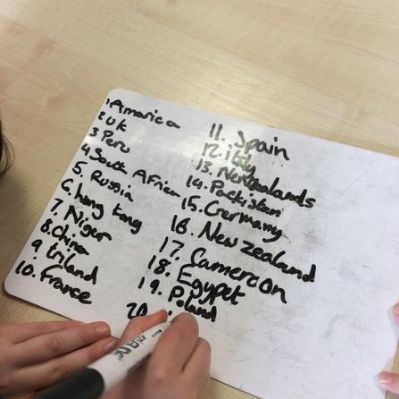 1 Amarica
2 UK
3 Peru
4 South Africa
5. Russia
6. hong Kong
7. Niger
8. China
9 Irland
10. France
11. Spain
12. italy
13. Netherlands
14. Packistan
15. Germany
16. New zealand
17. Cameroon
18. Egypet
19. Poland
20.